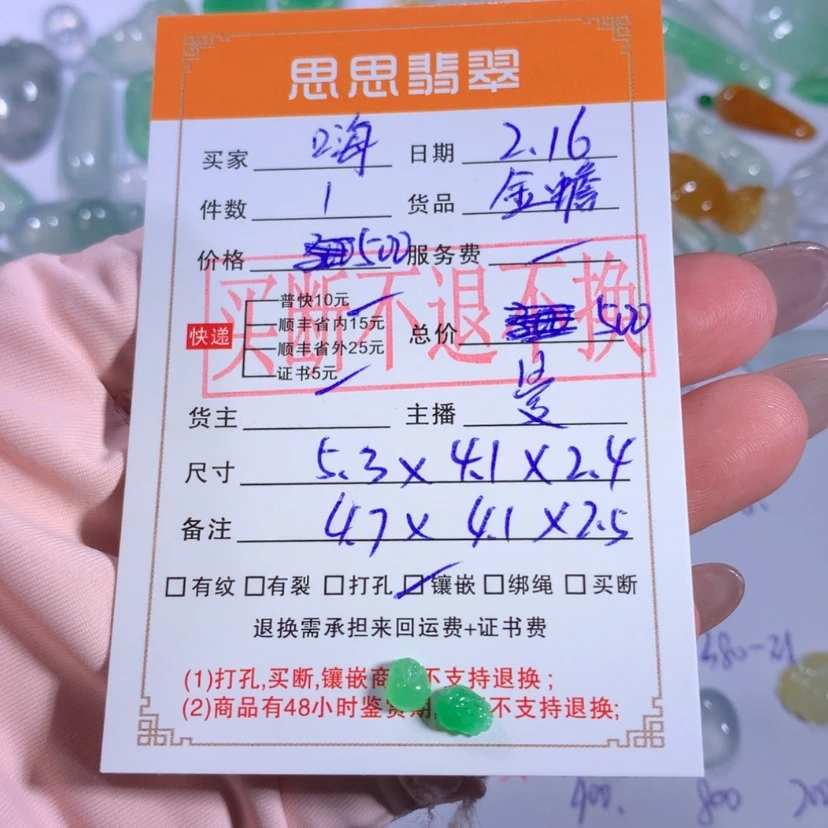 思思翡翠
买家 口海 日期 2.16
件数 1 货品 金蟾
价格 500 服务费
买断不退不换
快递
普快10元
顺丰省内15元
顺丰省外25元
证书5元
总价 500
货主 主播
尺寸 5.3 x 4.1 x 2.4
备注 4.7 x 4.1 x 2.5
□有纹 □有裂 □打孔 □镶嵌 □绑绳 □买断
退换需承担来回运费+证书费
(1)打孔,买断,镶嵌商 不支持退换;
(2)商品有48小时鉴赏期, 不支持退换;
380-21
400.
800